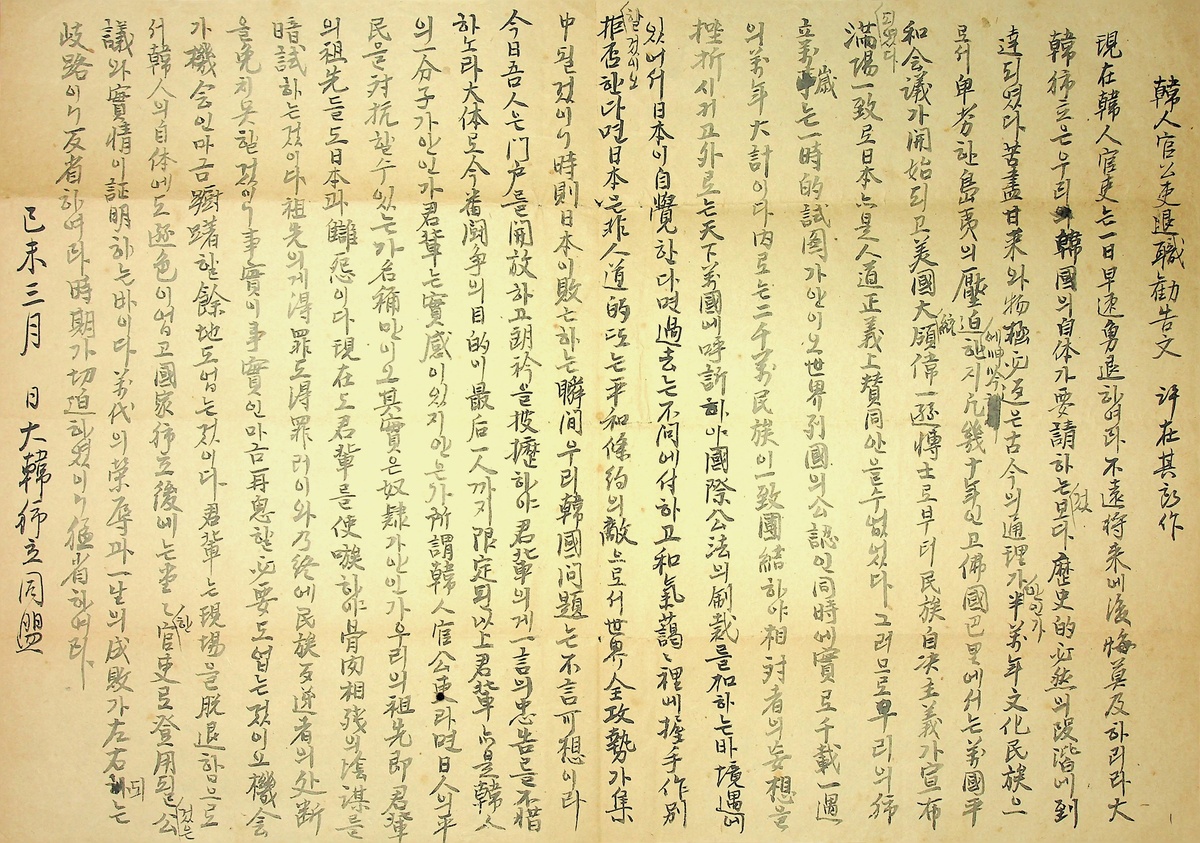 韓人官公吏退職勸告文 許在其 作
現在韓人官吏는一日早速勇退하여라不遠将来에後悔莫及하리라大
韓獨立은우리韓國의自体가要請하는것보다歷史的必然의段階에到
達되였다苦盡甘来와物極必返은古今의通理가안인가半萬年文化民族으
로서卑劣한島夷의壓迫에呻吟한지凡幾十年인고佛國巴里에서는萬國平
和会議가開始되고美國大統領偉一遜博士로부터民族自决主義가宣布되였다
滿場一致로日本亦是人道正義上賛同안을수없었다 그러므로우리의獨
立萬歲는一時的試圖가안이오世界列國의公認인同時에實로千載一遇
의萬年大計이다内로는二千萬民族이一致團結하야相対者의妄想을
挫折시키고外로는天下萬國에呼訴하야國際公法의制裁를加하는바境遇에
있어서日本이自覺한다면過去는不问에付하고和氣藹々裡에握手作別할것이오
拒否한다면日本은非人道的또는平和條約의敵으로서世界全攻勢가集
中될것이니時則日本이敗亡하는瞬间우리韓國问題는不言可想이라
今日吾人는门户를開放하고朗衿을披瀝하야君輩의게一言의忠告를不惜
하노라大体로今番闘争의目的이最后一人까지限定되以上君輩亦是韓人
의一分子가안인가君輩는實感이있지안는가所謂韓人官公吏라면日人의平
民을対抗할수있는가名稱만이오其實은奴隸가안인가우리의祖先即君輩
의祖先들도日本과讎怨이다現在도君輩를使嗾하야骨肉相殘의陰謀를
暗試하는것이다祖先의게得罪도得罪러이와乃終에民族反逆者의处断
을免치못할것이니事實이事實인마금再思할必要도업는것이오機会
가機会인마금躕躇할餘地도업는것이다君輩는現場을脱退함으로
서韓人의自体에도遜色이업고國家獨立後에는堂々한官吏로登用될것은公
議와實情이証明하는바이다萬代의榮辱과一生의成敗가左右되는
岐路이니反省하여라時期가切迫하였이니猛省하여라
己未三月 日大韓獨立同盟